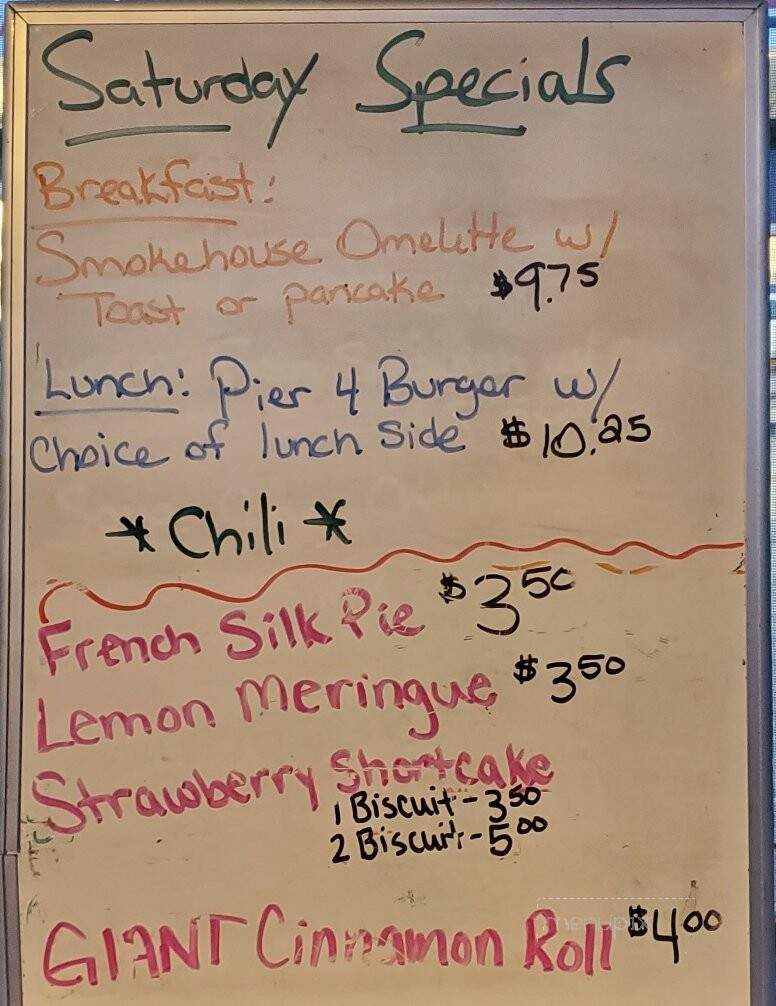 Saturday Specials
Breakfast:
Smokehouse Omelette w/
Toast or pancake $9.75
Lunch: Pier 4 Burger w/
Choice of lunch Side $10.25
*Chili*
French Silk Pie $3 50
Lemon Meringue $3 50
Strawberry Shortcake
1 Biscuit - 3 50
2 Biscuit - 5 00
menupix
GIANT Cinnamon Roll $4 00